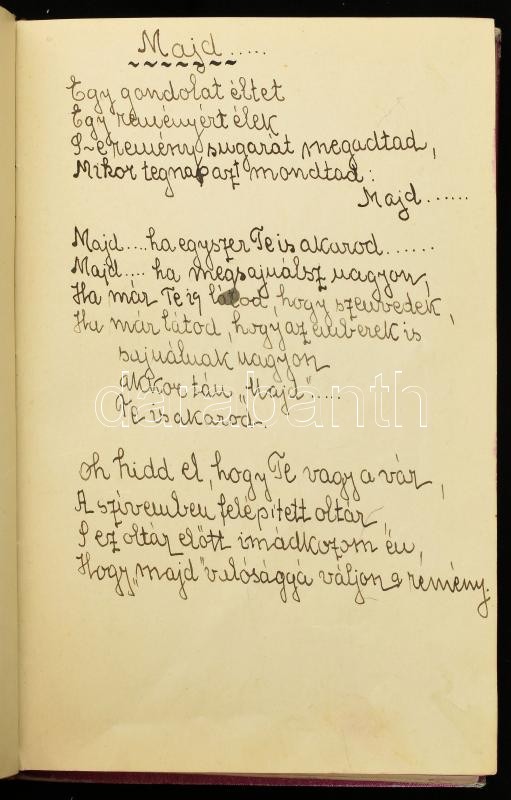 Majd.....
Egy gondolat éltet
Egy reményért élek
S e remény sugarát megadtad,
Mikor tegnap azt mondtad:
Majd......
Majd....ha egyszer Te is akarod......
Majd.... ha megsajnálsz nagyon,
Ha már Te is látod, hogy szenvedek,
Ha már látod, hogy az emberek is
sajnálnak nagyon
akkor tán "Majd"....
Te is akarod.
oh hidd el, hogy Te vagy a vár,
A szívemben felépített oltár,
S ez oltár előtt imádkozom én,
Hogy "majd" valósággá váljon a rémény.
darabanth